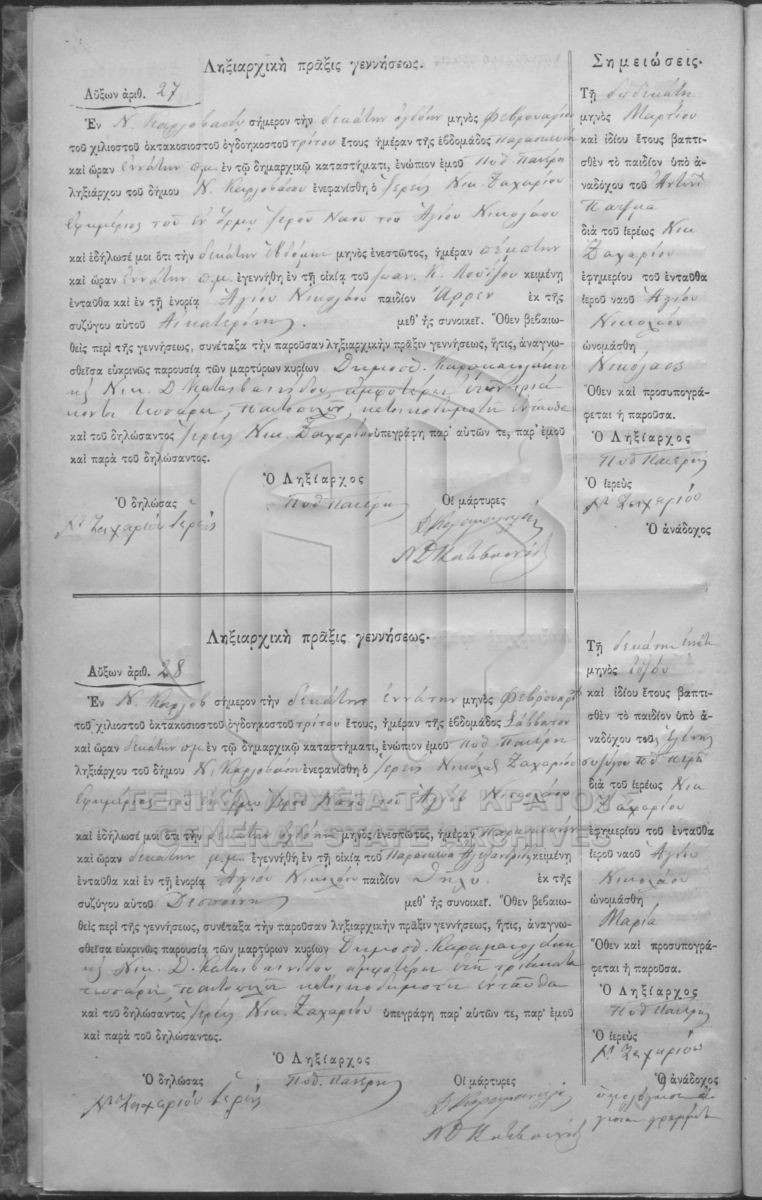 Ληξιαρχικὴ πρᾶξις γεννήσεως.
Αὔξων ἀριθ. 27
Ἐν Ν. Καρλοβασίῳ σήμερον τὴν δεκάτην ὀγδόην μηνὸς Φεβρουαρίου
τοῦ χιλιοστοῦ ὀκτακοσιοστοῦ ὀγδοηκοστοῦ τρίτου ἔτους ἡμέραν τῆς ἑβδομάδος Παρασκευὴν
καὶ ὥραν ἐννάτην π.μ. ἐν τῷ δημαρχικῷ καταστήματι, ἐνώπιον ἐμοῦ Πυθ
ληξιάρχου τοῦ δήμου Ν. Καρλοβασίου ἐνεφανίσθη ὁ Ἱερεὺς Νικ. Ζαχαρίου
ἐφημέριος τοῦ ἐν Ὅρμῳ Ἱεροῦ Ναοῦ τοῦ Ἁγίου Νικολάου
καὶ ἐδήλωσέ μοι ὅτι τὴν δεκάτην ἑβδόμην μηνὸς ἐνεστῶτος, ἡμέραν πέμπτην
καὶ ὥραν ἐννάτην π.μ. ἐγεννήθη ἐν τῇ οἰκίᾳ τοῦ Ἰωαν. Κ. κειμένῃ
ἐνταῦθα καὶ ἐν τῇ ἐνορίᾳ Ἁγίου Νικολάου παιδίον Ἄρρεν ἐκ τῆς
συζύγου αὐτοῦ Αἰκατερίνης. μεθ' ἧς συνοικεῖ. Ὅθεν βεβαιω-
θεὶς περὶ τῆς γεννήσεως, συνέταξα τὴν παροῦσαν ληξιαρχικὴν πρᾶξιν γεννήσεως, ἥτις, ἀναγνω-
σθεῖσα εὐκρινῶς παρουσίᾳ τῶν μαρτύρων κυρίων Δημοσθ.
Νικ. Δ. ἀμφοτέρων ἐτῶν τριά-
κοντα τεσσάρων, παντοπωλῶν, κατοίκων ἐνταῦθα
καὶ τοῦ δηλώσαντος Ἱερέως Νικ. Ζαχαρίου ὑπεγράφη παρ' αὐτῶν τε, παρ' ἐμοῦ
καὶ παρὰ τοῦ δηλώσαντος.
Ὁ Ληξίαρχος
Ὁ δηλώσας
Οἱ μάρτυρες
Ν Ζαχαρίου Ἱερεὺς
Σημειώσεις.
Τῇ δωδεκάτῃ
μηνὸς Μαρτίου
καὶ ἰδίου ἔτους βαπτι-
σθὲν τὸ παιδίον ὑπὸ ἀ-
ναδόχου τοῦ
διὰ τοῦ ἱερέως Νικ
Ζαχαρίου
ἐφημερίου τοῦ ἐνταῦθα
ἱεροῦ ναοῦ Ἁγίου
Νικολάου
ὠνομάσθη
Νικόλαος
Ὅθεν καὶ προσυπογρά-
φεται ἡ παροῦσα.
Ὁ Ληξίαρχος
Ὁ ἱερεὺς
Ν Ζαχαρίου
Ὁ ἀνάδοχος
Ληξιαρχικὴ πρᾶξις γεννήσεως.
Αὔξων ἀριθ. 28
Ἐν Ν. Καρλοβ σήμερον τὴν δεκάτην ἐννάτην μηνὸς Φεβρουαρ
τοῦ χιλιοστοῦ ὀκτακοσιοστοῦ ὀγδοηκοστοῦ τρίτου ἔτους, ἡμέραν τῆς ἑβδομάδος Σάββατον
καὶ ὥραν δεκάτην π.μ. ἐν τῷ δημαρχικῷ καταστήματι, ἐνώπιον ἐμοῦ Πυθ
ληξιάρχου τοῦ δήμου Ν. Καρλοβασίου ἐνεφανίσθη ὁ Ἱερεὺς Νικόλαος Ζαχαρίου
ἐφημέριος τοῦ ἐν Ὅρμῳ Ἱεροῦ Ναοῦ τοῦ Ἁγίου Νικολάου
καὶ ἐδήλωσέ μοι ὅτι τὴν δεκάτην ὀγδόην μηνὸς ἐνεστῶτος, ἡμέραν Παρασκευὴν
καὶ ὥραν δεκάτην μ.μ. ἐγεννήθη ἐν τῇ οἰκίᾳ τοῦ κειμένῃ
ἐνταῦθα καὶ ἐν τῇ ἐνορίᾳ Ἁγίου Νικολάου παιδίον θῆλυ. ἐκ τῆς
συζύγου αὐτοῦ Δεσποίνης μεθ' ἧς συνοικεῖ. Ὅθεν βεβαιω-
θεὶς περὶ τῆς γεννήσεως, συνέταξα τὴν παροῦσαν ληξιαρχικὴν πρᾶξιν γεννήσεως, ἥτις, ἀναγνω-
σθεῖσα εὐκρινῶς παρουσίᾳ τῶν μαρτύρων κυρίων Δημοσθ.
Νικ. Δ. ἀμφοτέρων ἐτῶν τριάκοντα
τεσσάρων, παντοπωλῶν ἐνταῦθα
καὶ τοῦ δηλώσαντος Ἱερέως Νικ. Ζαχαρίου ὑπεγράφη παρ' αὐτῶν τε, παρ' ἐμοῦ
καὶ παρὰ τοῦ δηλώσαντος.
Ὁ Ληξίαρχος
Ὁ δηλώσας
Οἱ μάρτυρες
Ν Ζαχαρίου Ἱερεὺς
Τῇ δεκάτῃ
μηνὸς
καὶ ἰδίου ἔτους βαπτι-
σθὲν τὸ παιδίον ὑπὸ ἀ-
ναδόχου τοῦ Ἑλένης
συζύγου
διὰ τοῦ ἱερέως Νικ
Ζαχαρίου
ἐφημερίου τοῦ ἐνταῦθα
ἱεροῦ ναοῦ Ἁγίου
Νικολάου
ὠνομάσθη
Μαρία
Ὅθεν καὶ προσυπογρά-
φεται ἡ παροῦσα.
Ὁ Ληξίαρχος
Ὁ ἱερεὺς
Ν Ζαχαρίου
Ὁ ἀνάδοχος
ΓΕΝΙΚΑ ΑΡΧΕΙΑ ΤΟΥ ΚΡΑΤΟΥΣ
GENERAL STATE ARCHIVES